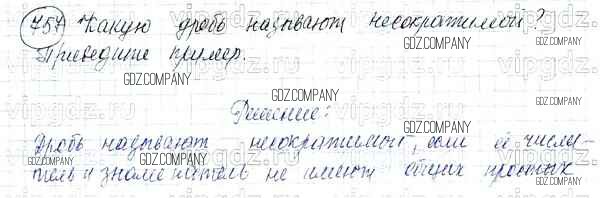 757 Какую дробь называют несократимой?
Приведите пример.
Решение:
Дробь называют несократимой, если её числи
тель и знаменатель не имеют общих простых
GDZ.COMPANY
GDZ.COMPANY
GDZ.COMPANY
GDZ.COMPANY
GDZ.COMPANY
GDZ.COMPANY
GDZ.COMPANY
vipgdz.ru
vipgdz.ru
vipgdz.ru